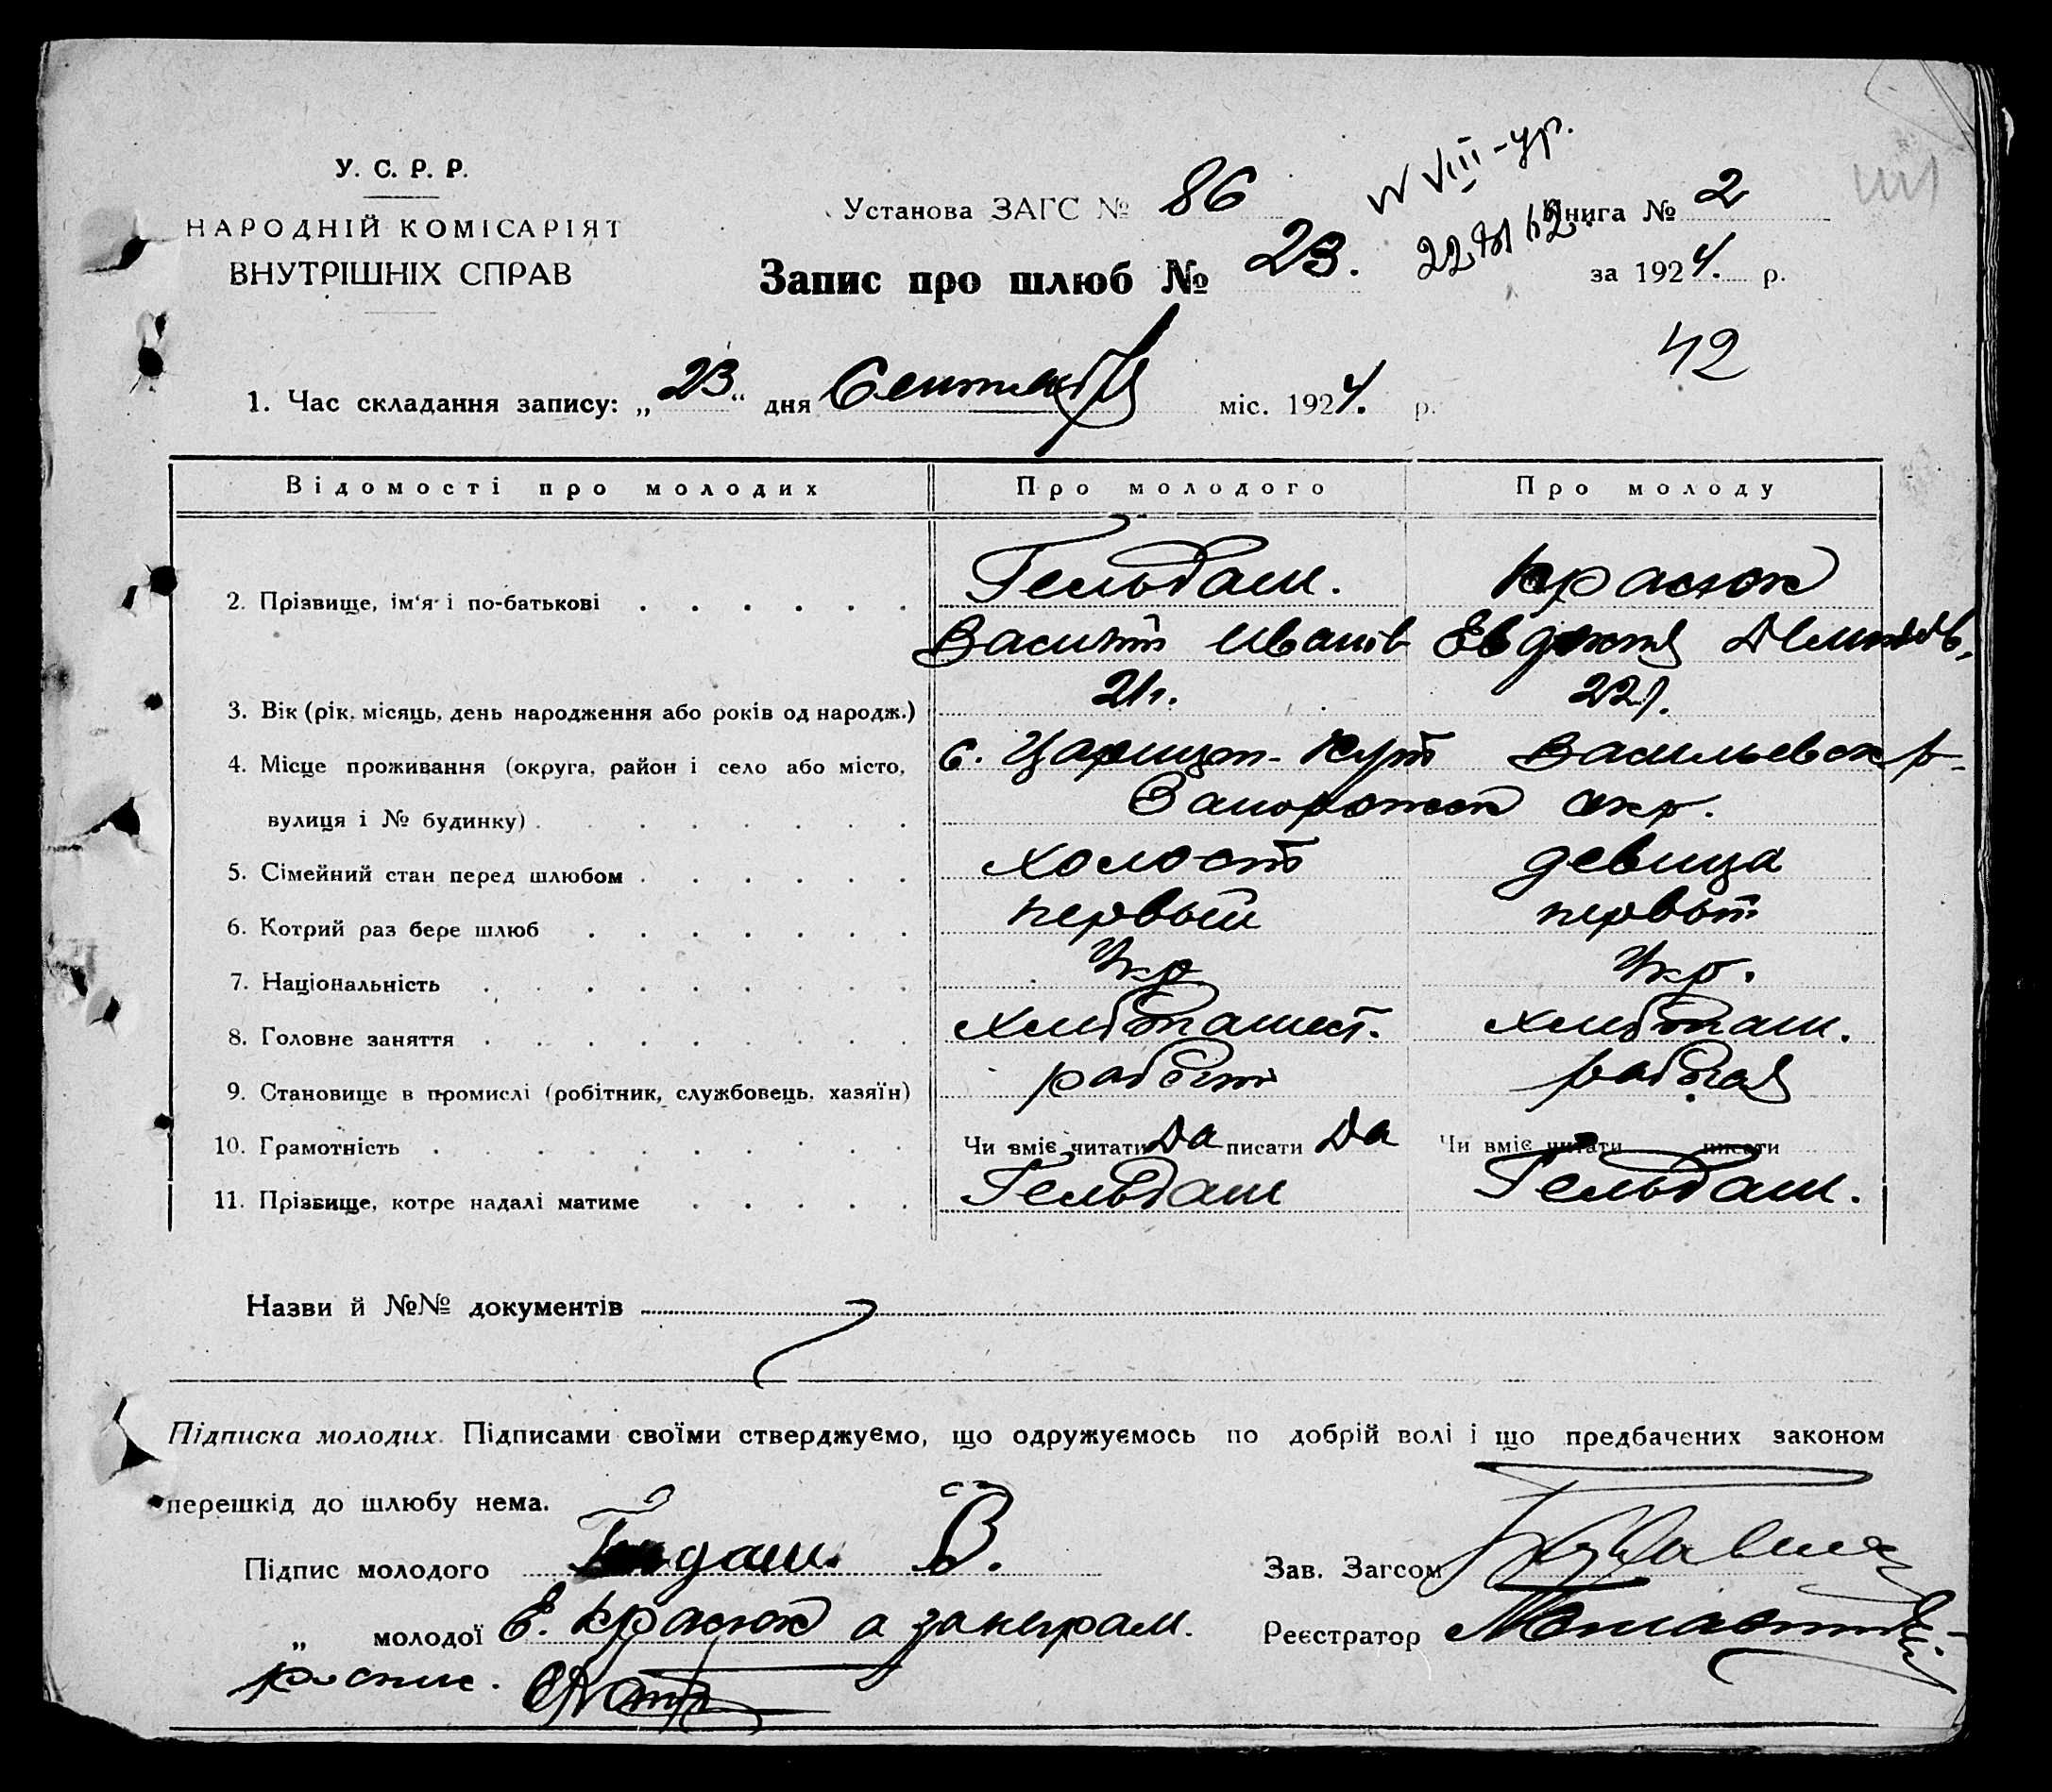 У. С. Р. Р.
НАРОДНІЙ КОМІСАРІЯТ
ВНУТРІШНІХ СПРАВ
Установа ЗАГС № 86
VIII-ур.
Книга № 2
Запис про шлюб № 23.
за 1924. р.
42
1. Час складання запису: „23“ дня Сентября міс. 1924. р.
Відомості про молодих Про молодого Про молоду
2. Прізвище, ім'я і по-батькові Гельдаш. Красюк
Василий Иванов Евдокия
3. Вік (рік, місяць, день народження або років од народж.) 21г. 22г.
4. Місце проживання (округа, район і село або місто, с. Царицын-Кут Васильевск р-
вулиця і № будинку) Запорожск окр.
5. Сімейний стан перед шлюбом холост девица
6. Котрий раз бере шлюб первый первый
7. Національність Укр Укр.
8. Головне заняття хлебопашест. хлебопаш.
9. Становище в промислі (робітник, службовець, хазяїн)
10. Грамотність Чи вміє читати Да писати Да Чи вміє читати писати
11. Прізвище, котре надалі матиме Гельдаш Гельдаш.
Назви й №№ документів
Підписка молодих. Підписами своїми стверджуємо, що одружуємось по добрій волі і що предбачених законом
перешкід до шлюбу нема.
Підпис молодого В.
Зав. Загсом
„ молодої Е. Красюк а за неграм.
Реєстратор
роспис.